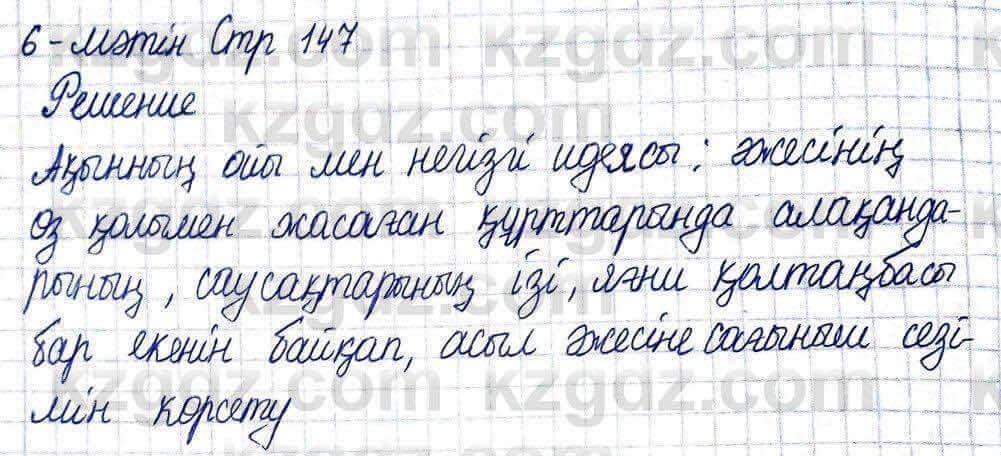 6-мәтін Стр 147
Решение
Ақынның ойы мен негізгі идеясы: әжесінің
өз қолымен жасаған құрттарында алақанда-
рының, саусақтарының ізі, яғни қолтаңбасы
бар екенін байқап, асыл әжесіне сағыныш сезі-
мін көрсету